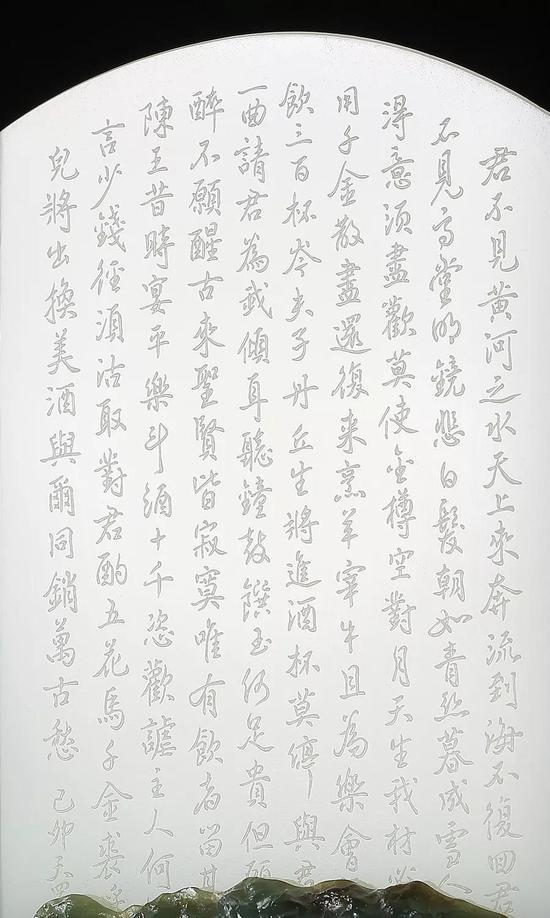 君不見黃河之水天上來奔流到海不復回君
不見高堂明鏡悲白髮朝如青絲暮成雪人
得意須盡歡莫使金樽空對月天生我材必
用千金散盡還復來烹羊宰牛且為樂會
飲三百杯岑夫子丹丘生將進酒杯莫停與君
一曲請君為我傾耳聽鐘鼓饌玉何足貴但願
醉不願醒古來聖賢皆寂寞唯有飲者留其
陳王昔時宴平樂斗酒十千恣歡謔主人何
言少錢徑須沽取對君酌五花馬千金裘呼
兒將出換美酒與爾同銷萬古愁 己卯天